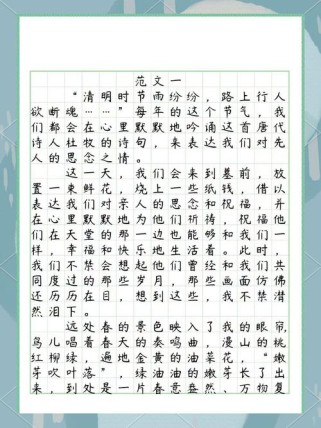 范文一
“清明时节雨纷纷，路上行人
欲断魂……”每年的这个节气，我
们都会在心里默默地吟诵这首唐代
诗人杜牧的诗句，来表达我们对先
人的思念之情。
这一天，我们会来到墓前，放
置一束鲜花，烧上一些纸钱，借以
表达我们对亲人的思念和祝福，并
在心里默默地为他们祈祷，祝福他
们在天堂的那一边也能够和我们一
样，幸福和快乐地生活着。此时，
我们不禁会想起他们曾经和我们共
同度过的那些岁月，那些画面仿佛
还历历在目，想到这些，我不禁潸
然泪下。
远处春的景色映入了我的眼帘，
鸟儿唱着春天的奏鸣曲，漫山的桃
红柳绿，遍地金黄的油菜花，“嫩
芽吹叶落”，绿油油的嫩芽长了出
来，到处是一片春意盎然、万物复